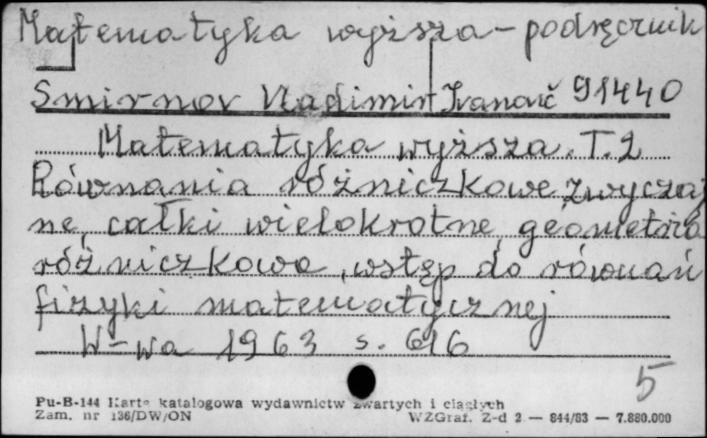 Matematyka wyższa - podręcznik
Smirnov Vladimir Ivanovič 91440
Matematyka wyższa. T. 2
Równania różniczkowe zwyczaj
ne, całki wielokrotne, geometria
różniczkowa, wstęp do równań
fizyki matematycznej
W-wa 1963 s. 616
5
Pu-B-144 Karta katalogowa wydawnictw zwartych i ciągłych
Zam. nr 136/DW/ON WZGraf. Z-d 2 — 844/83 — 7.880.000